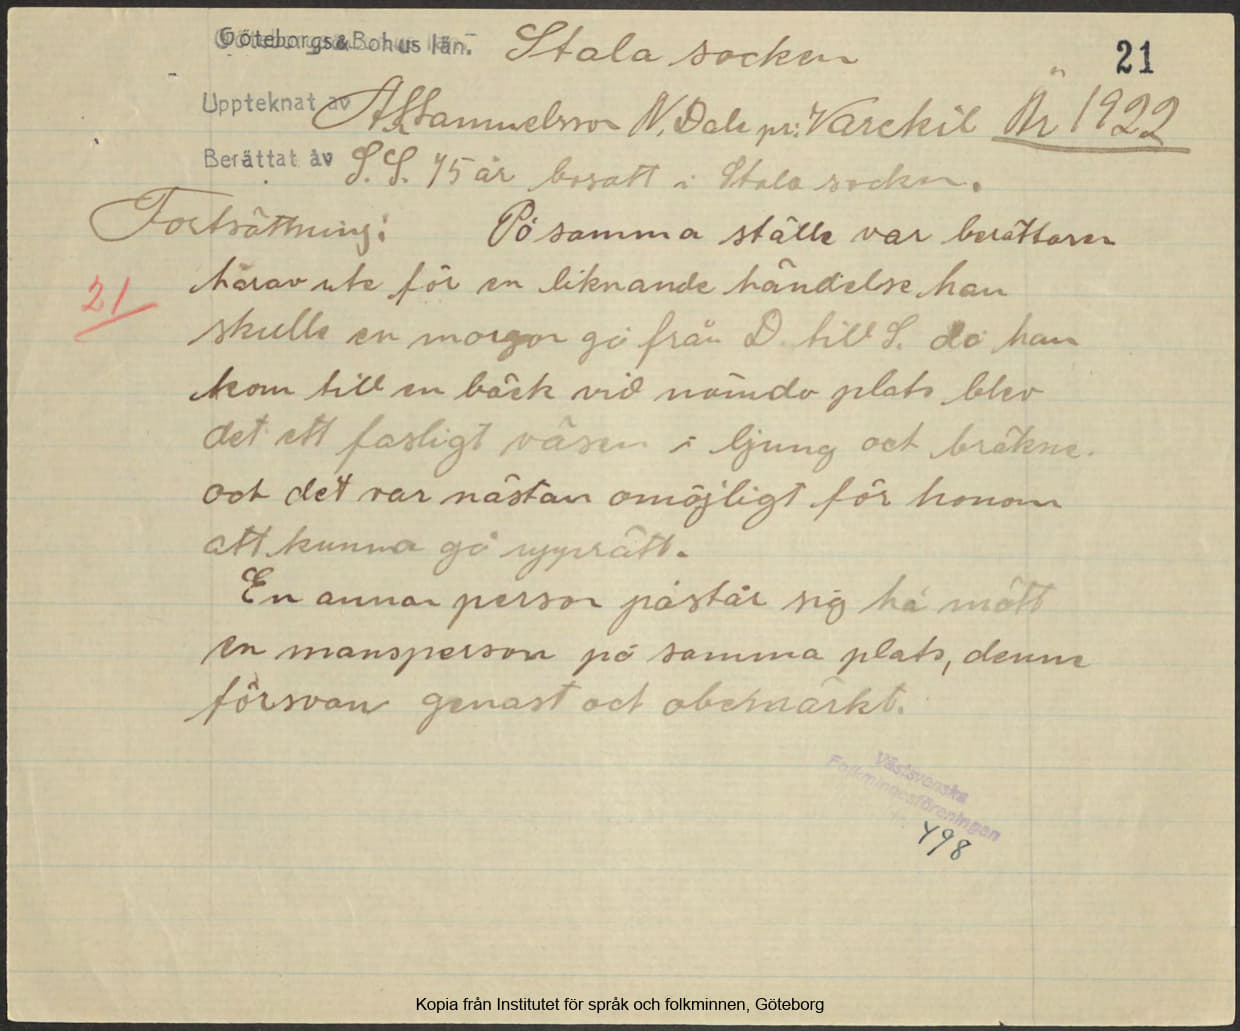 Göteborgs & Bohus län. Stala socken 21
Uppteknat av A Samuelsson N. Dale pr: Varekil År 1922
Berättat av S. S. 75 år bosatt i Stala socken.
Fortsättning: På samma ställe var berättaren
härav ute för en liknande händelse, han
21
skulle en morgon gå från D. till S. då han
kom till en bäck vid nämda plats blev
det ett fasligt väsen i ljung och bräkne.
och det var nästan omöjligt för honom
att kunna gå upprätt.
En annan person påstår sig ha mött
en mansperson på samma plats, denne
försvan genast och obemärkt.
Västsvenska
Folkminnesföreningen
498
Kopia från Institutet för språk och folkminnen, Göteborg